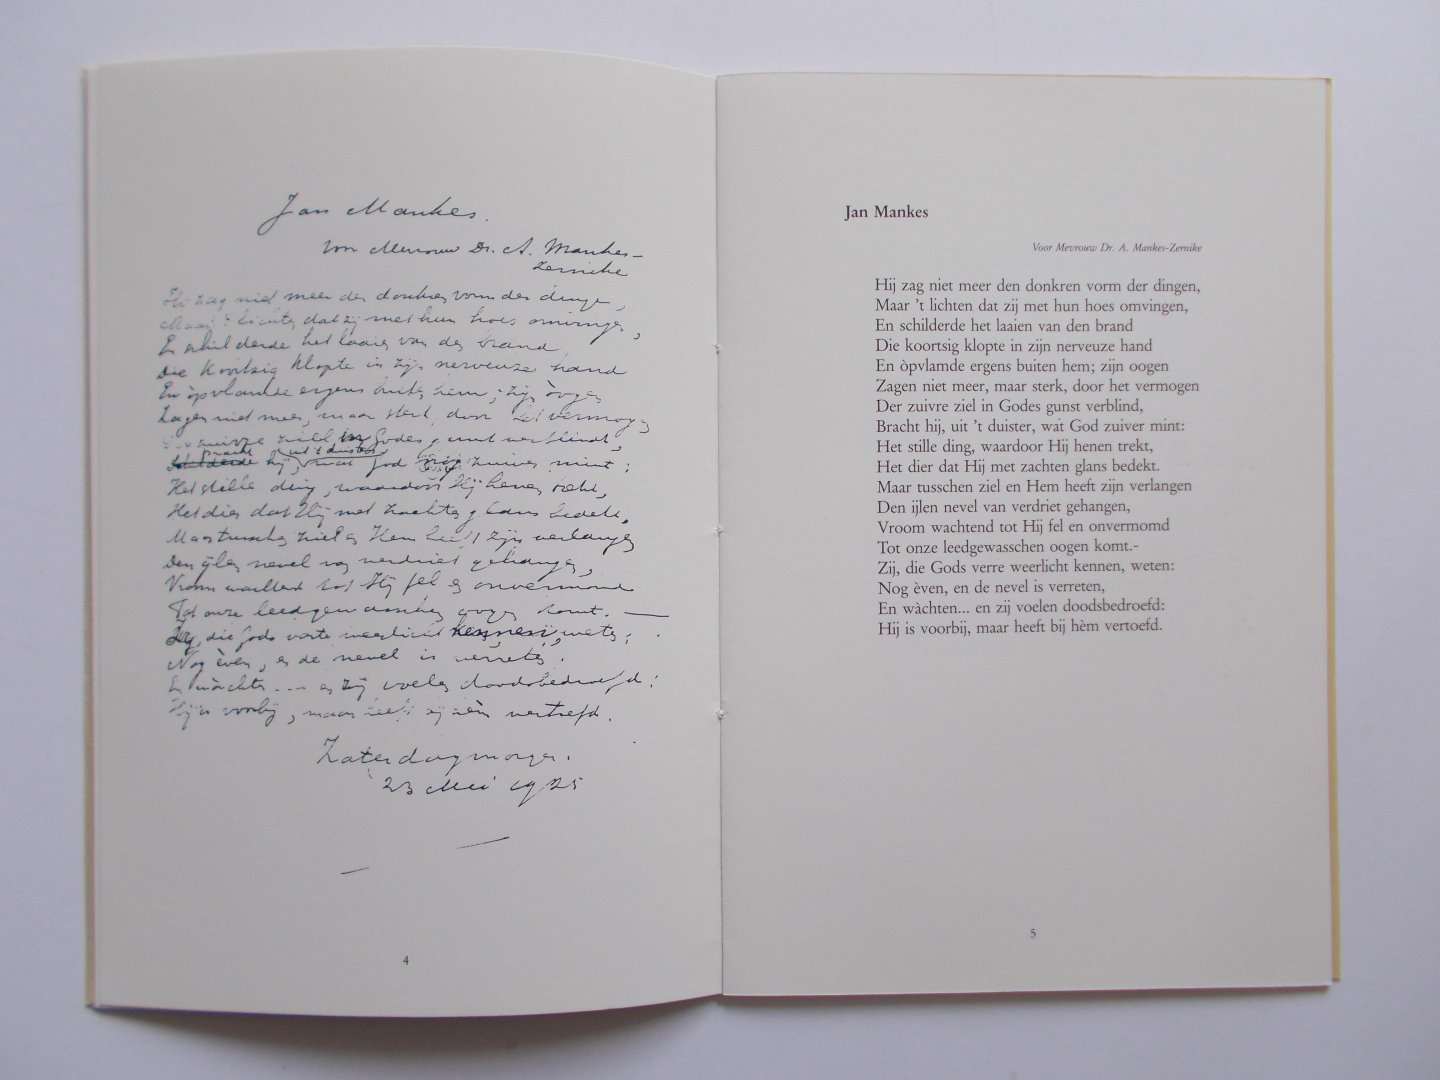 Jan Mankes.
Voor Mevrouw Dr. A. Mankes-
Zernike
Hij zag niet meer den donkren vorm der dingen,
Maar 't lichten dat zij met hun hoes omvingen,
En schilderde het laaien van den brand
Die koortsig klopte in zijn nerveuze hand
En òpvlamde ergens buiten hem; zijn òogen
Zagen niet meer, maar sterk, door het vermogen
Der zuivre ziel in Godes gunst verblind,
bracht uit 't duister
Schilderde hij, wat God zuiver mint:
Het stille ding, waardoor Hij henen trekt,
Het dier dat Hij met zachten glans bedekt.
Maar tusschen ziel en Hem heeft zijn verlangen
Den ijlen nevel van verdriet gehangen,
Vroom wachtend tot Hij fel en onvermomd
Tot onze leedgewasschen oogen komt. —
Zij, die Gods verre weerlicht kennen, weten:
Nog èven, en de nevel is verreten.
En wàchten... en zij voelen doodsbedroefd:
Hij is voorbij, maar heeft bij hèm vertoefd.
Zaterdagmorgen.
23 Mei 1925
4
Jan Mankes
Voor Mevrouw Dr. A. Mankes-Zernike
Hij zag niet meer den donkren vorm der dingen,
Maar 't lichten dat zij met hun hoes omvingen,
En schilderde het laaien van den brand
Die koortsig klopte in zijn nerveuze hand
En òpvlamde ergens buiten hem; zijn oogen
Zagen niet meer, maar sterk, door het vermogen
Der zuivre ziel in Godes gunst verblind,
Bracht hij, uit 't duister, wat God zuiver mint:
Het stille ding, waardoor Hij henen trekt,
Het dier dat Hij met zachten glans bedekt.
Maar tusschen ziel en Hem heeft zijn verlangen
Den ijlen nevel van verdriet gehangen,
Vroom wachtend tot Hij fel en onvermomd
Tot onze leedgewasschen oogen komt.-
Zij, die Gods verre weerlicht kennen, weten:
Nog èven, en de nevel is verreten,
En wàchten... en zij voelen doodsbedroefd:
Hij is voorbij, maar heeft bij hèm vertoefd.
5